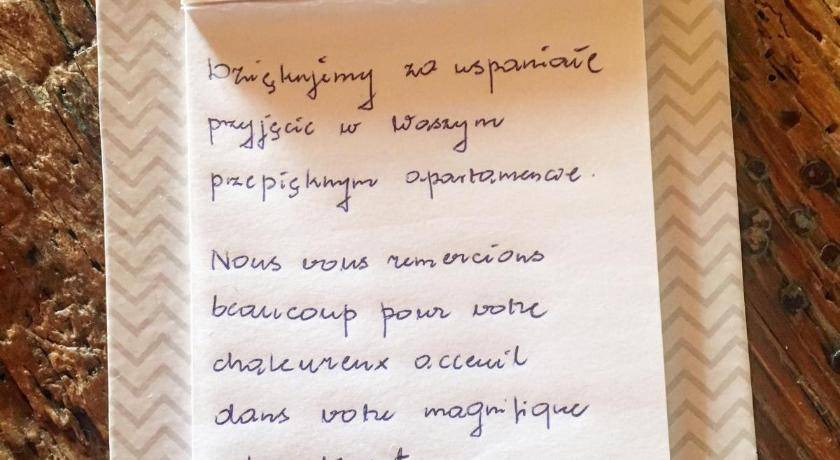 Dziękujemy za wspaniałe
przyjęcie w Waszym
przepięknym apartamencie.
Nous vous remercions
beaucoup pour votre
chaleureux acceuil
dans votre magnifique